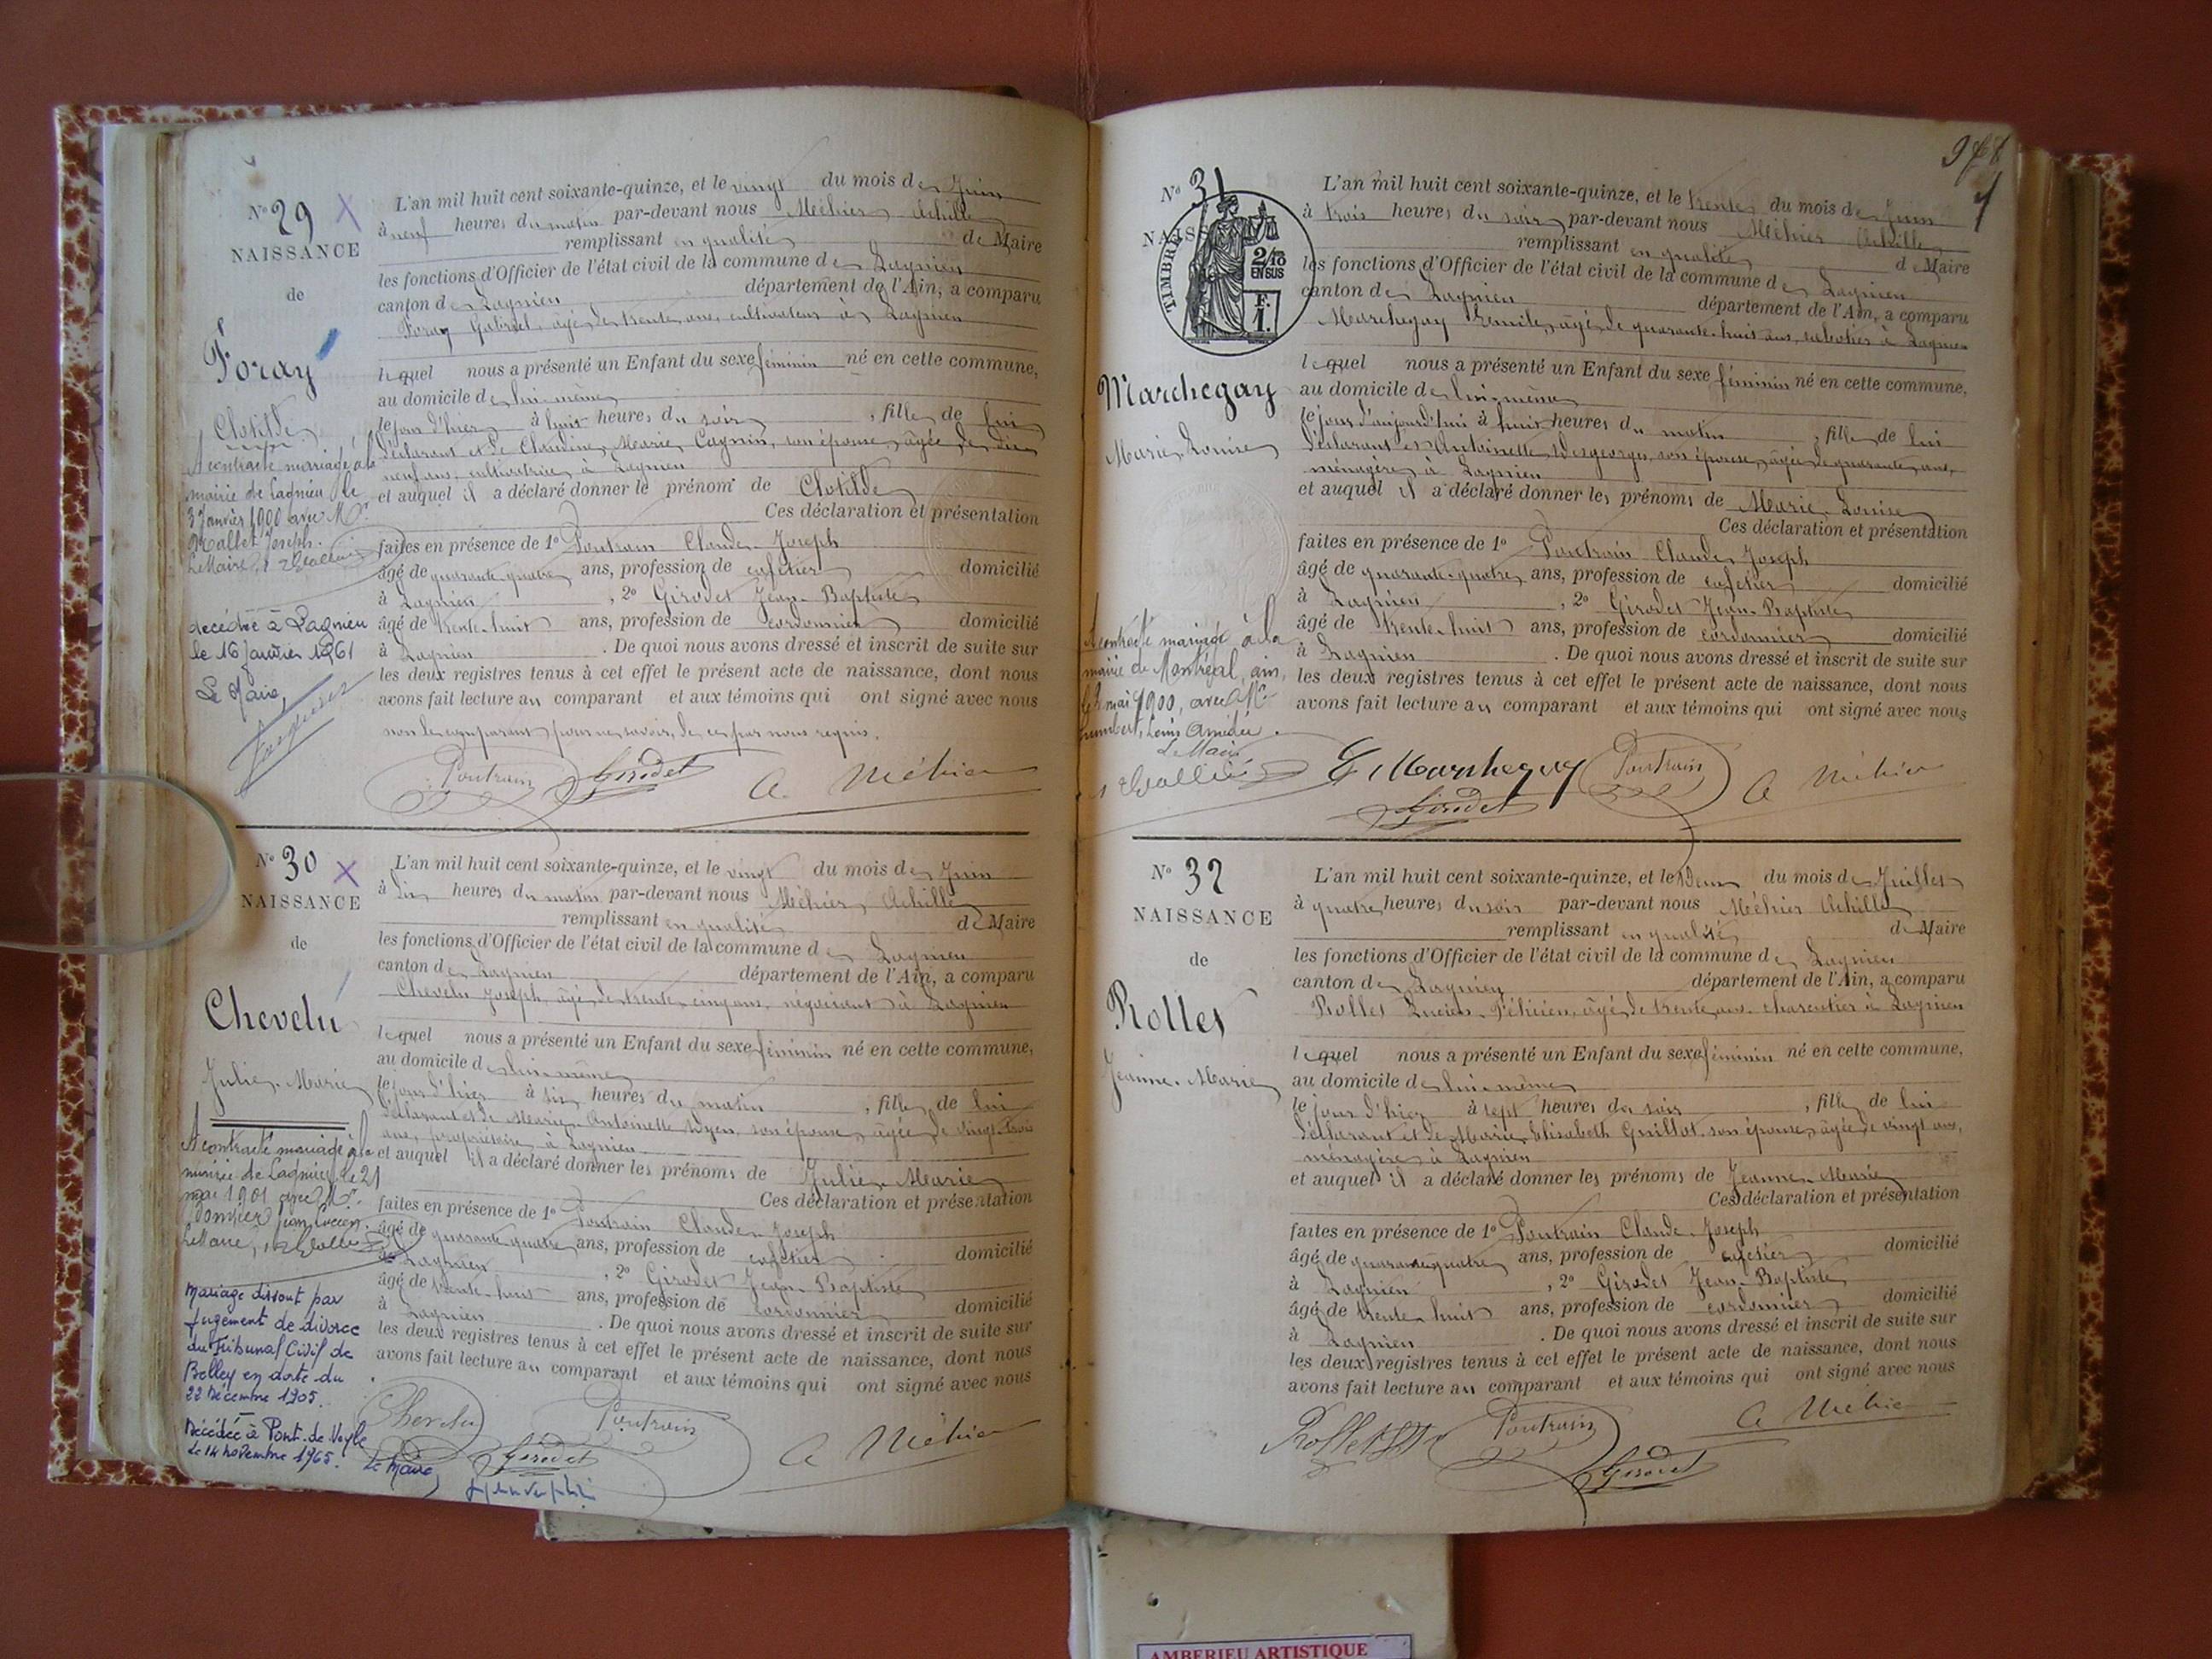 N° 29 X
NAISSANCE
de
Foray
Clotilde
A contracté mariage à la
mairie de Lagnieu le
3 Janvier 1900 avec Mr
Mallet Joseph.
Le Maire,
décédée à Lagnieu
le 16 janvier 1961
Le Maire,
L'an mil huit cent soixante-quinze, et le vingt du mois de Juin
à neuf heures du matin par-devant nous Méhier Achille
remplissant en qualité de Maire
les fonctions d'Officier de l'état civil de la commune de Lagnieu
canton de Lagnieu département de l'Ain, a comparu
Foray Gabriel, âgé de trente ans, cultivateur à Lagnieu
lequel nous a présenté un Enfant du sexe féminin né en cette commune,
au domicile de lui-même
le jour d'hier à huit heures du soir, fille de lui
déclarant et de Claudine Marie Cagnin, son épouse, âgée de dix
neuf ans, cultivatrice à Lagnieu
et auquel il a déclaré donner le prénom de Clotilde
Ces déclaration et présentation
faites en présence de 1° Poutrain Claude Joseph
âgé de quarante-quatre ans, profession de cafetier domicilié
à Lagnieu, 2° Girodet Jean-Baptiste
âgé de trente-huit ans, profession de cordonnier domicilié
à Lagnieu. De quoi nous avons dressé et inscrit de suite sur
les deux registres tenus à cet effet le présent acte de naissance, dont nous
avons fait lecture au comparant et aux témoins qui ont signé avec nous
non le comparant pour ne savoir, de ce par nous requis.
Poutrain Girodet A. Méhier
N° 30 X
NAISSANCE
de
Chevelu
Julie-Marie
A contracté mariage à la
mairie de Lagnieu le 21
mai 1901 avec Mr
Jean Lucien.
Le Maire,
Mariage dissout par
jugement de divorce
du Tribunal Civil de
Belley en date du
22 Décembre 1905.
Décédée à Pont-de-Veyle
le 14 novembre 1965.
Le Maire,
L'an mil huit cent soixante-quinze, et le vingt du mois de Juin
à dix heures du matin par-devant nous Méhier Achille
remplissant en qualité de Maire
les fonctions d'Officier de l'état civil de la commune de Lagnieu
canton de Lagnieu département de l'Ain, a comparu
Chevelu Joseph, âgé de trente-cinq ans, négociant à Lagnieu
lequel nous a présenté un Enfant du sexe féminin né en cette commune,
au domicile de lui-même
le jour d'hier à six heures du matin, fille de lui
déclarant et de Marie-Antoinette son épouse, âgée de vingt-trois
ans, propriétaire à Lagnieu
et auquel il a déclaré donner les prénoms de Julie-Marie
Ces déclaration et présentation
faites en présence de 1° Poutrain Claude-Joseph
âgé de quarante-quatre ans, profession de cafetier domicilié
à Lagnieu, 2° Girodet Jean-Baptiste
âgé de trente-huit ans, profession de cordonnier domicilié
à Lagnieu. De quoi nous avons dressé et inscrit de suite sur
les deux registres tenus à cet effet le présent acte de naissance, dont nous
avons fait lecture au comparant et aux témoins qui ont signé avec nous
Chevelu Poutrain
Girodet A Méhier
N° 31
NAISS
TIMBRE
2/10
EN SUS
F.
1.
Marchegay
Marie Louise
A contracté mariage à la
mairie de Montréal, ain,
le mai 1900, avec Mr
humbert, Louis Amédée.
Le Maire
L'an mil huit cent soixante-quinze, et le trente du mois de Juin
à trois heures du soir par-devant nous Méhier Achille
remplissant en qualité de Maire
les fonctions d'Officier de l'état civil de la commune de Lagnieu
canton de Lagnieu département de l'Ain, a comparu
Marchegay Emile, âgé de quarante-huit ans, à Lagnieu
lequel nous a présenté un Enfant du sexe féminin né en cette commune,
au domicile de lui-même
le jour d'aujourd'hui à huit heures du matin, fille de lui
déclarant et Antoinette Desgeorges, son épouse, âgée de quarante ans,
ménagère à Lagnieu
et auquel il a déclaré donner les prénoms de Marie-Louise
Ces déclaration et présentation
faites en présence de 1° Poutrain Claude Joseph
âgé de quarante-quatre ans, profession de cafetier domicilié
à Lagnieu, 2° Girodet Jean-Baptiste
âgé de trente-huit ans, profession de cordonnier domicilié
à Lagnieu. De quoi nous avons dressé et inscrit de suite sur
les deux registres tenus à cet effet le présent acte de naissance, dont nous
avons fait lecture au comparant et aux témoins qui ont signé avec nous
E Marchegay Poutrain A Méhier
Girodet
N° 32
NAISSANCE
de
Rollet
Jeanne-Marie
L'an mil huit cent soixante-quinze, et le Deux du mois de Juillet
à quatre heures du soir par-devant nous Méhier Achille
remplissant en qualité de Maire
les fonctions d'Officier de l'état civil de la commune de Lagnieu
canton de Lagnieu département de l'Ain, a comparu
Rollet Lucien Félicien, âgé de trente ans, charcutier à Lagnieu
lequel nous a présenté un Enfant du sexe féminin né en cette commune,
au domicile de lui-même
le jour d'hier à sept heures du soir, fille de lui
déclarant et de Marie Elisabeth Guillot, son épouse, âgée de vingt ans,
ménagère à Lagnieu
et auquel il a déclaré donner les prénoms de Jeanne-Marie
Ces déclaration et présentation
faites en présence de 1° Poutrain Claude-Joseph
âgé de quarante-quatre ans, profession de cafetier domicilié
à Lagnieu, 2° Girodet Jean-Baptiste
âgé de trente-huit ans, profession de cordonnier domicilié
à Lagnieu. De quoi nous avons dressé et inscrit de suite sur
les deux registres tenus à cet effet le présent acte de naissance, dont nous
avons fait lecture au comparant et aux témoins qui ont signé avec nous
Rollet Poutrain A Méhier
Girodet
AMBERIEU ARTISTIQUE